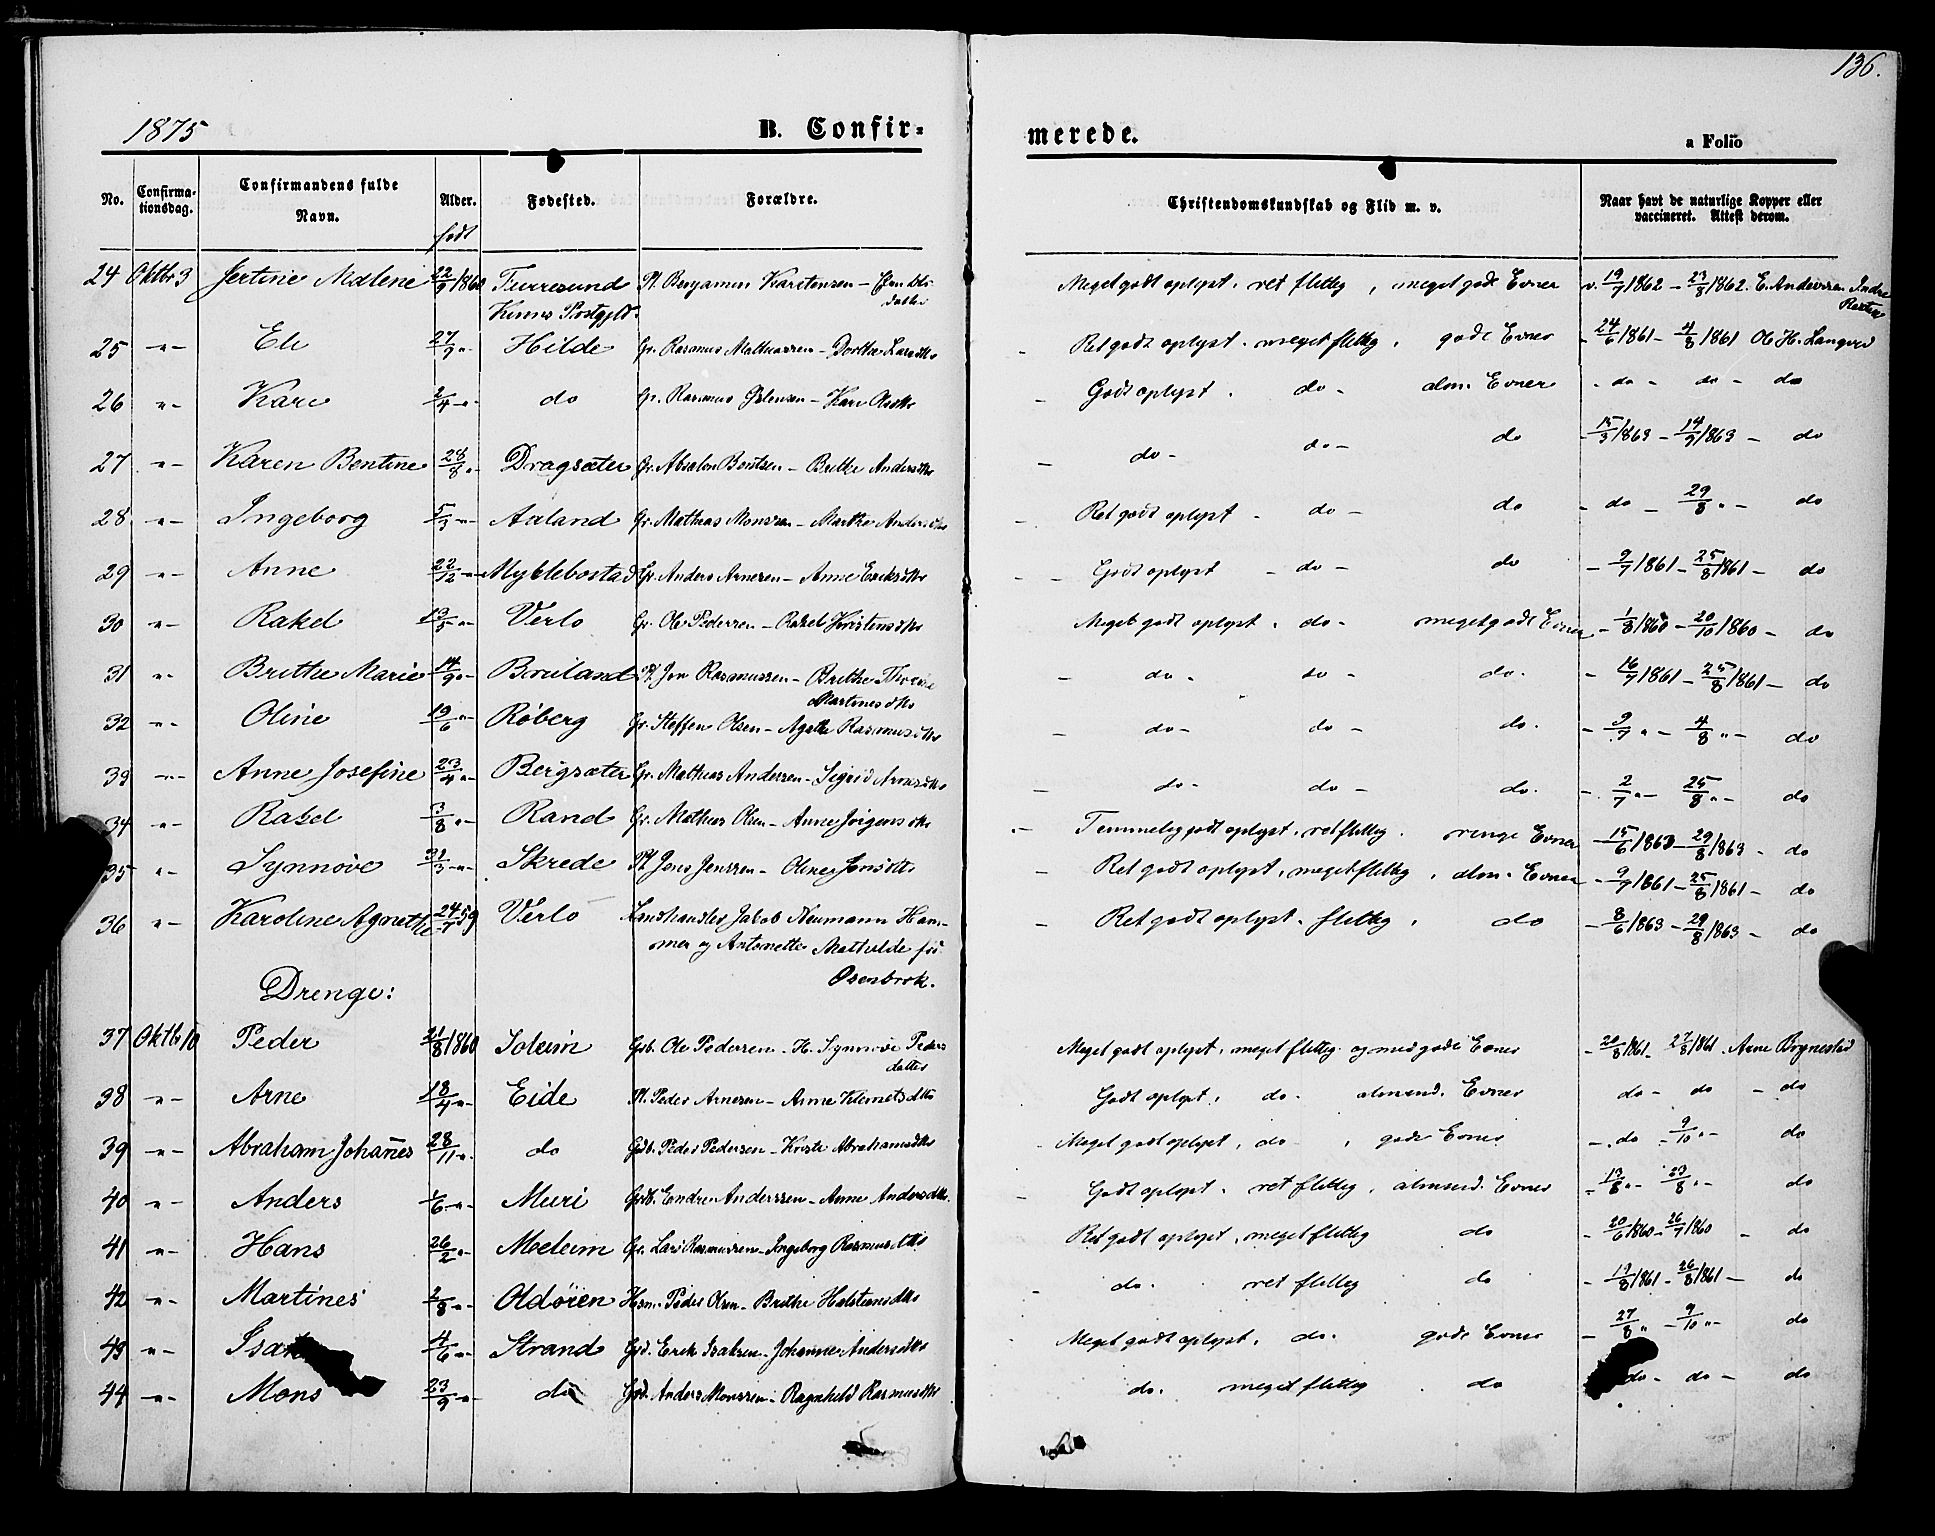 136.
1875 B. Confir= merede. a Folio
No. Confirma-tionsdag. Confirmandens fulde Navn. Alder. født Fødested. Forældre. Christendomskundskab og Flid m. v. Naar havt de naturlige Kopper eller vaccineret. Attest derom.
24 Oktbr 3 Jertine Malene 22/9 1860 Furresund Pl. Benjamin Karstensen - Meget godt oplyst, ret flittig, meget gode Evner v. 19/7 1862 - 23/8 1862. E. Anderssen Indre
datter
Kinns Præstgjld.
25 -"- Eli 27/9 " Hilde Gr. Rasmus Mathiassen - Dorthe Larsdtr - Ret godt oplyst. meget flittig, gode Evner - 24/6 1861 - 4/8 1861 Ole H. Langved
26 -"- Kari 2/4 -"- do Gr. Rasmus - Kari Olsdtr - Godt oplyst. do - alm. Evner - do - do - do
27 -"- Karen Bentine 28/8 " Dragsæter Gr. Absalon Bentsen - Brithe Andersdtr - do - do - do - 15/3 1863 - 14/9 1863 - do
28 -"- Ingeborg 5/3 -"- Aaland Gr. Mathias Monssen - Marthe Andersdtr - Ret godt oplyst - do - do - do - 29/8 " - do
29 -"- Anne 22/12 -"- Myklebostad Gr. Anders Arnesen - Anne Eriksdtr - Godt oplyst - do - do - 9/7 1861 - 25/8 1861 - do
30 -"- Rakel 13/5 -"- Verlo Gr. Ole Pedersen - Rakel Kristensdtr Meget godt oplyst. do - meget gode Evner - 1/8 1860 - 20/10 1860 - do
31 -"- Brithe Marie 14/9 " Bruland Pl. Jon Rasmussen - Brithe - do - do - do. - 16/7 1861 - 25/8 1861 - do
Martinesdtr
32 -"- Oline 19/6 -"- Røberg Gr. Steffen Olsen - Agathe Rasmusdtr - do - do - do. - 9/7 " - 4/8 " - do
33 -"- Anne Josefine 23/4 -"- Bergsæter Gr. Mathias Anderssen - Sigrid Arnesdtr - do - do - do. - 2/7 " - 25/8 " - do
34 -"- Rakel 3/8 " - Rand Gr. Mathias Olsen - Anne Jørgensdtr - Temmelig godt oplyst, ret flittig. ringe Evner - 15/6 1863 - 29/8 1863 - do
35 " - Synnøve 31/3 -"- Skrede Pl. Jens Jenssen - Oline Jonsdtr - Ret godt oplyst, meget flittig, alm. Evner - 9/7 1861 - 25/8 1861 - do
36 "- Karoline Agnette 24/7 59 Verlo Landhandler Jakob Neumann Ham- - Ret godt oplyst. flittig, do - 8/6 1863 - 29/8 1863 - do
mer og Antonette Mathilde fød
Osenbrok.
Drenge:
37 Oktbr 10 Peder 21/8 1860 Soleim Gdb. Ole Pedersen - H. Synnøve Peders Meget godt oplyst, meget flittig og med gode Evner - 20/8 1861 - 27/8 1861. Arne Brynestad
datter
38 -"- Arne 18/4 -"- Eide Pl. Peder Arnesen - Anne Klemetsdtr Godt oplyst, do - almind. Evner do - do - do
39 -"- Abraham Johannes 28/11 -"- do Gdb. Peder Pedersen - Kristi Abrahamsdtr Meget godt oplyst, do, gode Evner - do - 9/10 " - do
40 -"- Anders 1/6 -"- Muri Gdb. Endre Anderssen - Anne Andersdtr. - Godt oplyst. ret flittig, almind. Evner - 13/8 " - 23/8 " - do
41 -"- Hans 26/2 " - Meleim Gr. Lars Rasmussen - Ingeborg Rasmusdtr Ret godt oplyst, meget flittig do - 20/6 1860 - 26/7 1860 - do
42 -"- Martines 2/8 -"- Oldøren Hsm. Peder Olsen - Brithe Halstensdtr do. ret flittig do - 19/8 1861 - 26/8 1861 - do
43 -"- Isak 4/6 -"- Strand Gd. Erik Isaksen - Johanne Andersdtr Meget godt oplyst. do. gode Evner - 27/8 " - 9/10 " - do
44 -"- Mons 23/9 -"- do Gd. Anders Monssen - Ragnhild Rasmusdtr do. meget flittig. do do - do - do